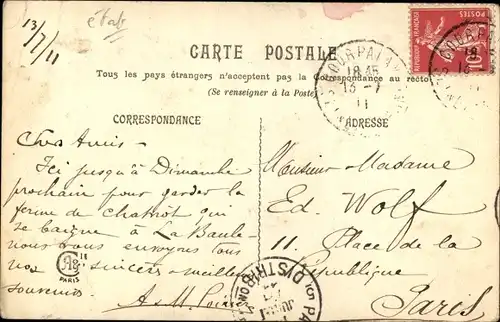 13/7/11
CARTE POSTALE
Tous les pays étrangers n'acceptent pas la Correspondance au recto
(Se renseigner à la Poste)
CORRESPONDANCE
ADRESSE
18 45
13 - 7
11
POSTES
10
Chers Amis -
Ici jusqu'à Dimanche
prochain pour garder la
ferme de qui
se baigne à La Baule
nous vous envoyons tous
nos sincères meilleurs
souvenirs.
A & M.
PARIS
DISTRIBON
Monsieur Madame
Ed. Wolf
11. Place de la
République
Paris